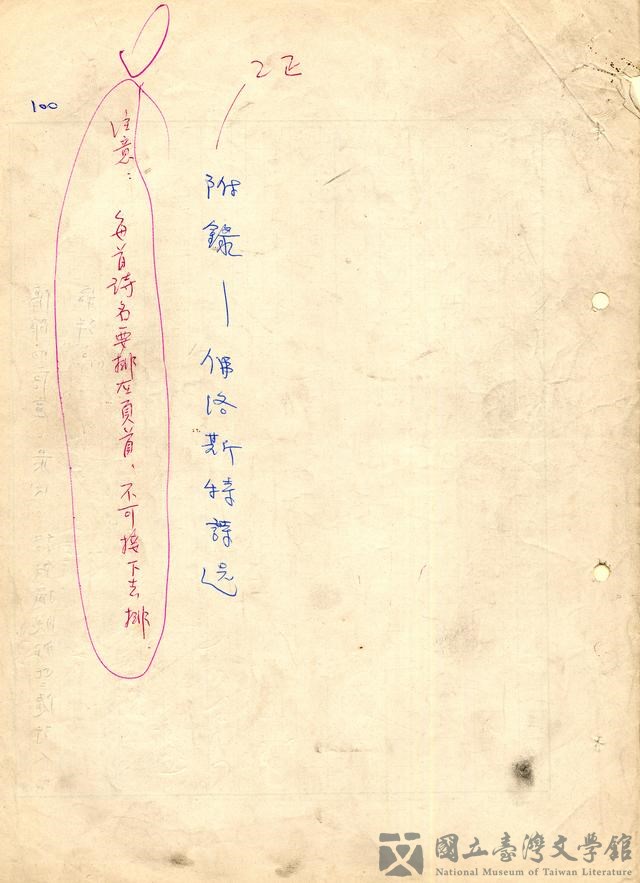 2正
附錄—佛洛斯特譯选
注意：每首诗名要排在頁首、不可接下去排
100
國立臺灣文學館
National Museum of Taiwan Literature